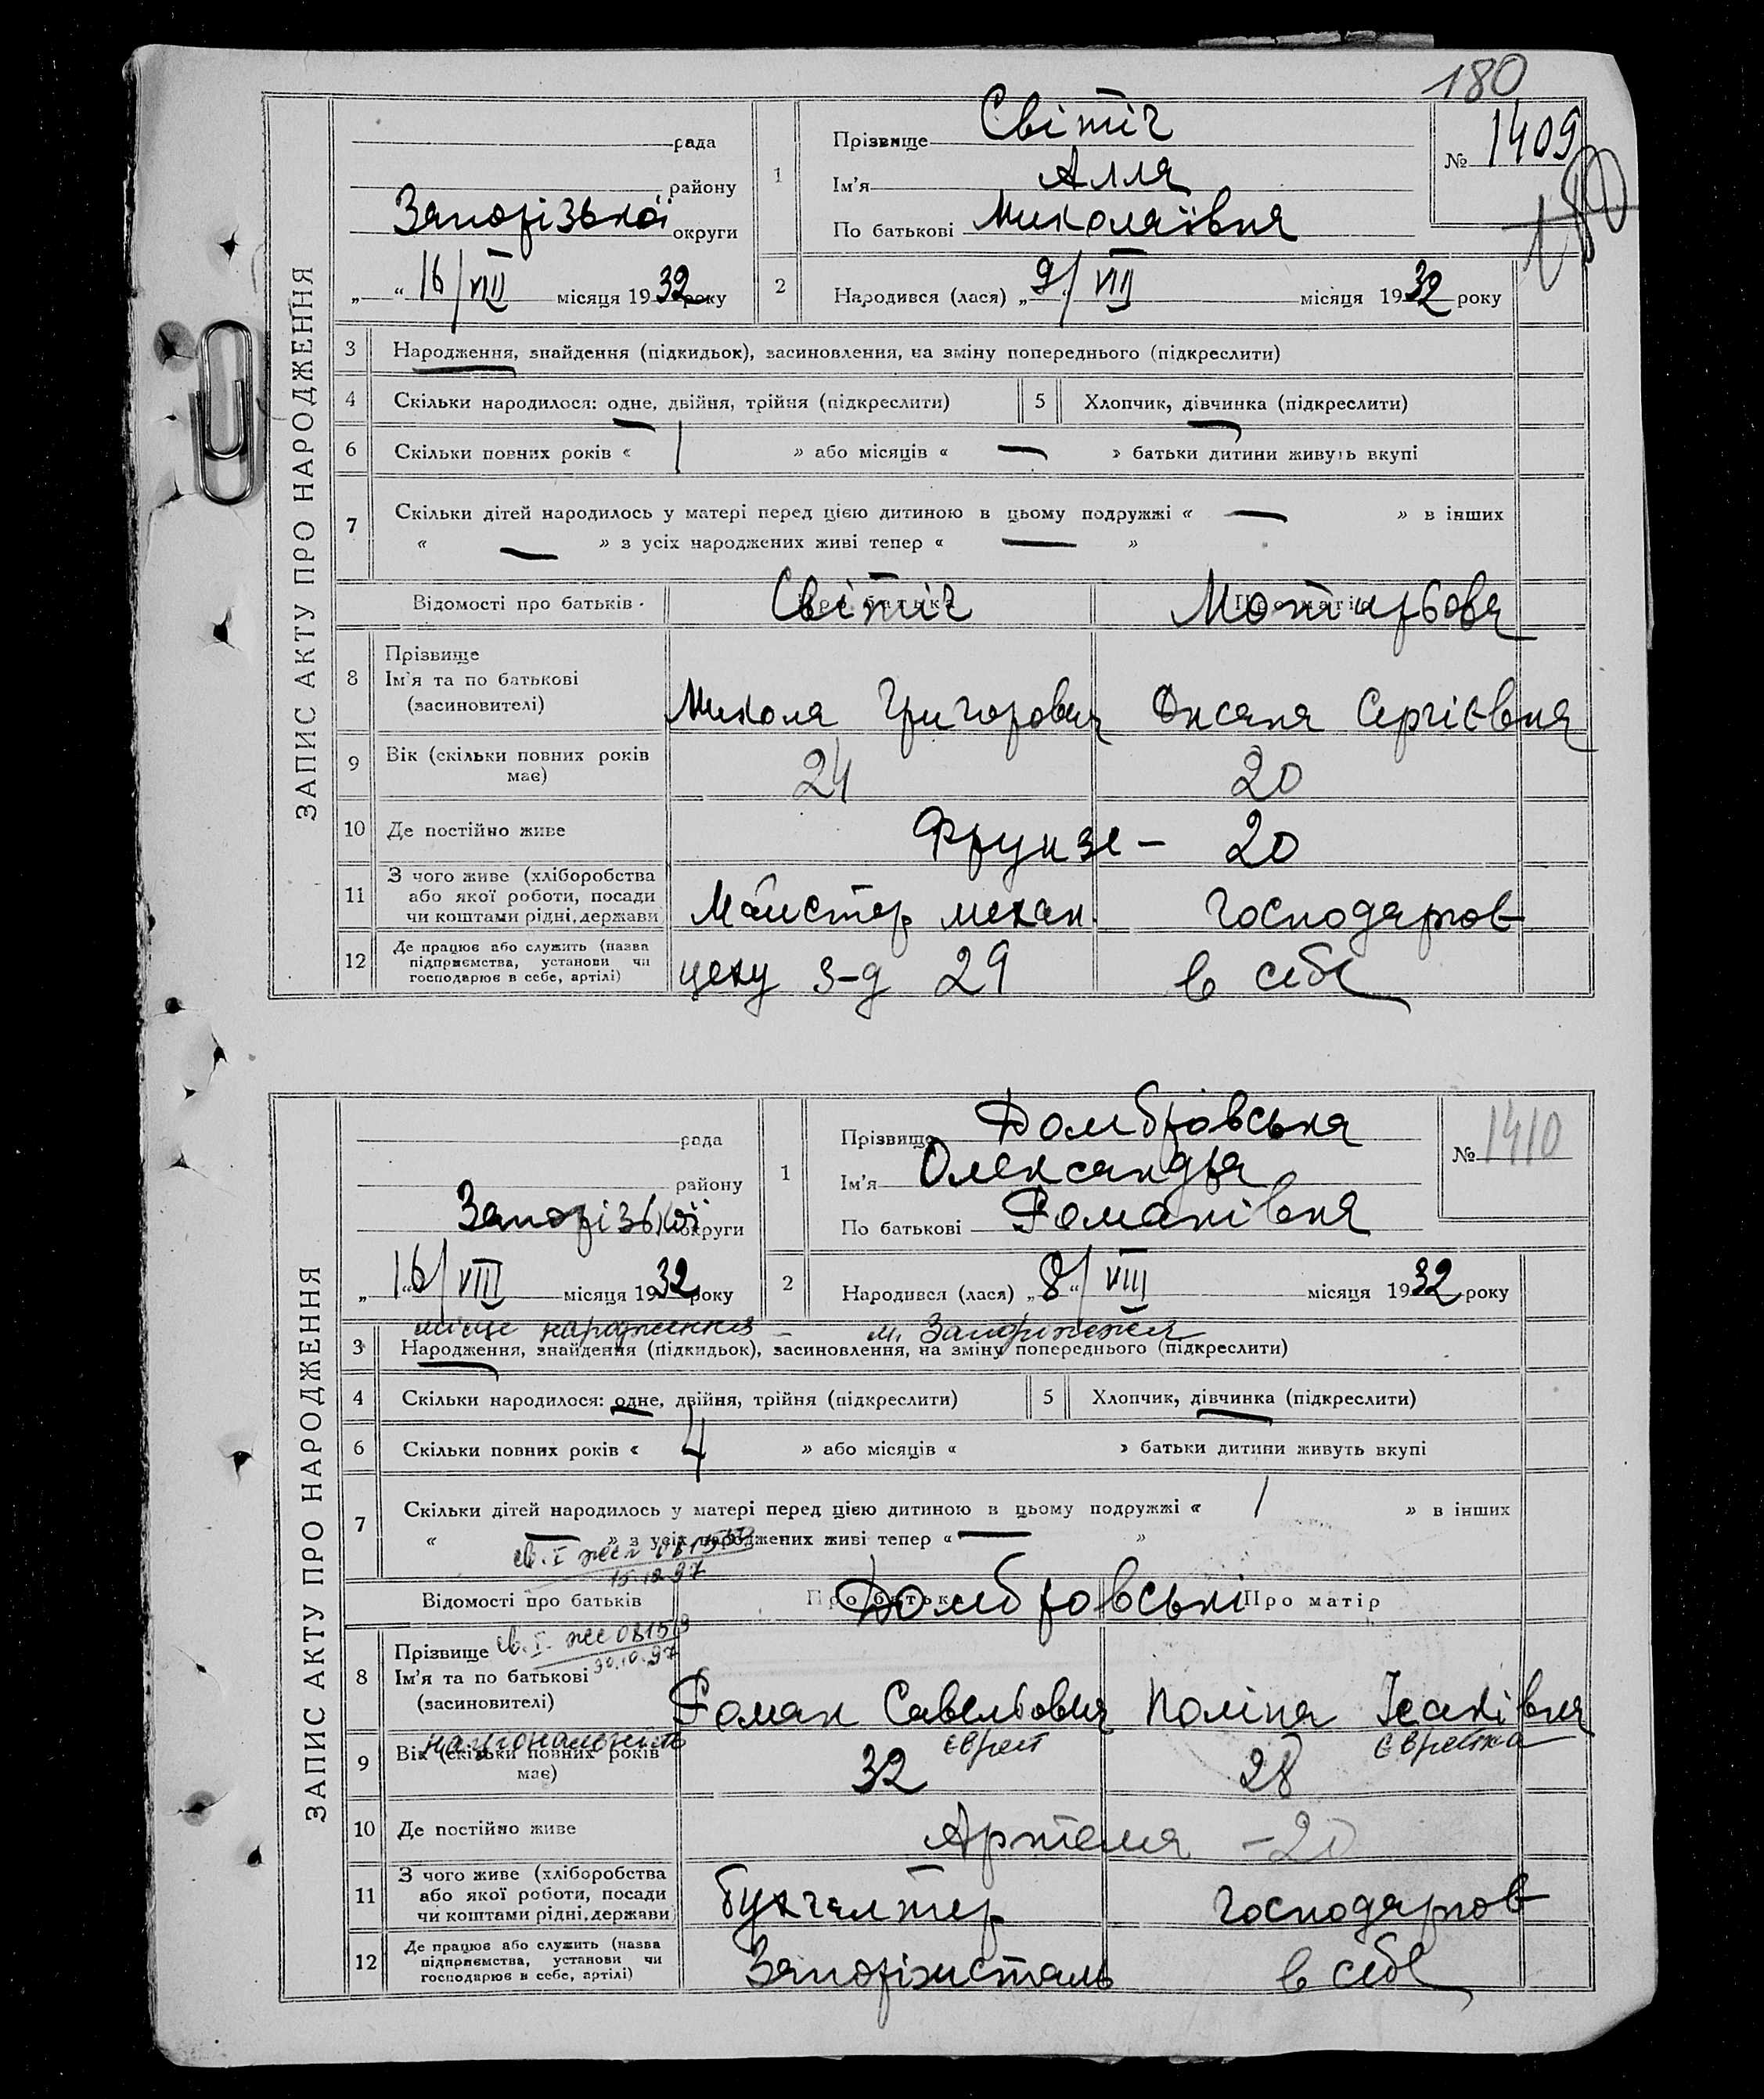 180
ЗАПИС АКТУ ПРО НАРОДЖЕННЯ
рада
району
Запорізької округи
„ “ 16/VIII місяця 1932 року
1 Прізвище Світіч
Ім'я Алля
По батькові Миколаївна
№ 1409
180
2 Народився (лася) „ 9/VIII місяця 1932 року
3 Народження, знайдення (підкидьок), засиновлення, на зміну попереднього (підкреслити)
4 Скільки народилося: одне, двійня, трійня (підкреслити) 5 Хлопчик, дівчинка (підкреслити)
6 Скільки повних років « 1 » або місяців « — » батьки дитини живуть вкупі
7 Скільки дітей народилось у матері перед цією дитиною в цьому подружжі « — » в інших
« — » з усіх народжених живі тепер « — »
Відомості про батьків Про батька Світіч Про матір
8 Прізвище
Ім'я та по батькові
(засиновителі)
Микола Григорович Оксана Сергієвна
9 Вік (скільки повних років має) 24 20
10 Де постійно живе Фрунзе - 20
11 З чого живе (хліборобства або якої роботи, посади чи коштами рідні, держави) Майстер механ. господарює
12 Де працює або служить (назва підприємства, установи чи господарює в себе, артілі) цеху з-д 29 в себе
ЗАПИС АКТУ ПРО НАРОДЖЕННЯ
рада
району
Запорізької округи
„ “ 16/VIII місяця 1932 року
1 Прізвище Домбровська
Ім'я Олександра
По батькові Романівна
№ 1410
2 Народився (лася) „ 8 “/VIII місяця 1932 року
місце народження — м. Запоріжжя
3 Народження, знайдення (підкидьок), засиновлення, на зміну попереднього (підкреслити)
4 Скільки народилося: одне, двійня, трійня (підкреслити) 5 Хлопчик, дівчинка (підкреслити)
6 Скільки повних років « 4 » або місяців « » батьки дитини живуть вкупі
7 Скільки дітей народилось у матері перед цією дитиною в цьому подружжі « 1 » в інших
« — » з усіх народжених живі тепер « — »
Відомості про батьків Про батька Домбровські Про матір
8 Прізвище
Ім'я та по батькові
(засиновителі)
30.10.97
Роман Савельович Поліна Ісаківна
національність єврей єврейка
9 Вік (скільки повних років має) 32 28
10 Де постійно живе Артема - 20
11 З чого живе (хліборобства або якої роботи, посади чи коштами рідні, держави) бухгалтер господарює
12 Де працює або служить (назва підприємства, установи чи господарює в себе, артілі) Запоріжсталь в себе